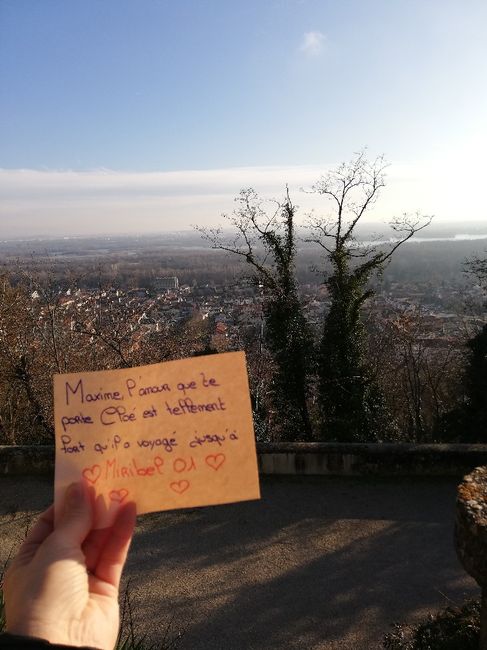 Maxime, l'amour que te
porte Cloé est tellement
fort qu'il a voyagé jusqu'à
Miribel 01